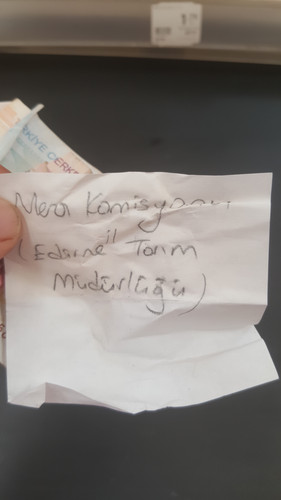 Mera Komisyonu
(Edirne İl Tarım
Müdürlüğü)